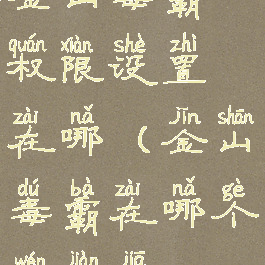 金山毒霸
quán xiàn shè zhì
权限设置
zài nǎ jīn shān
在哪(金山
dú bà zài nǎ gè
毒霸在哪个
wén jiàn jiā